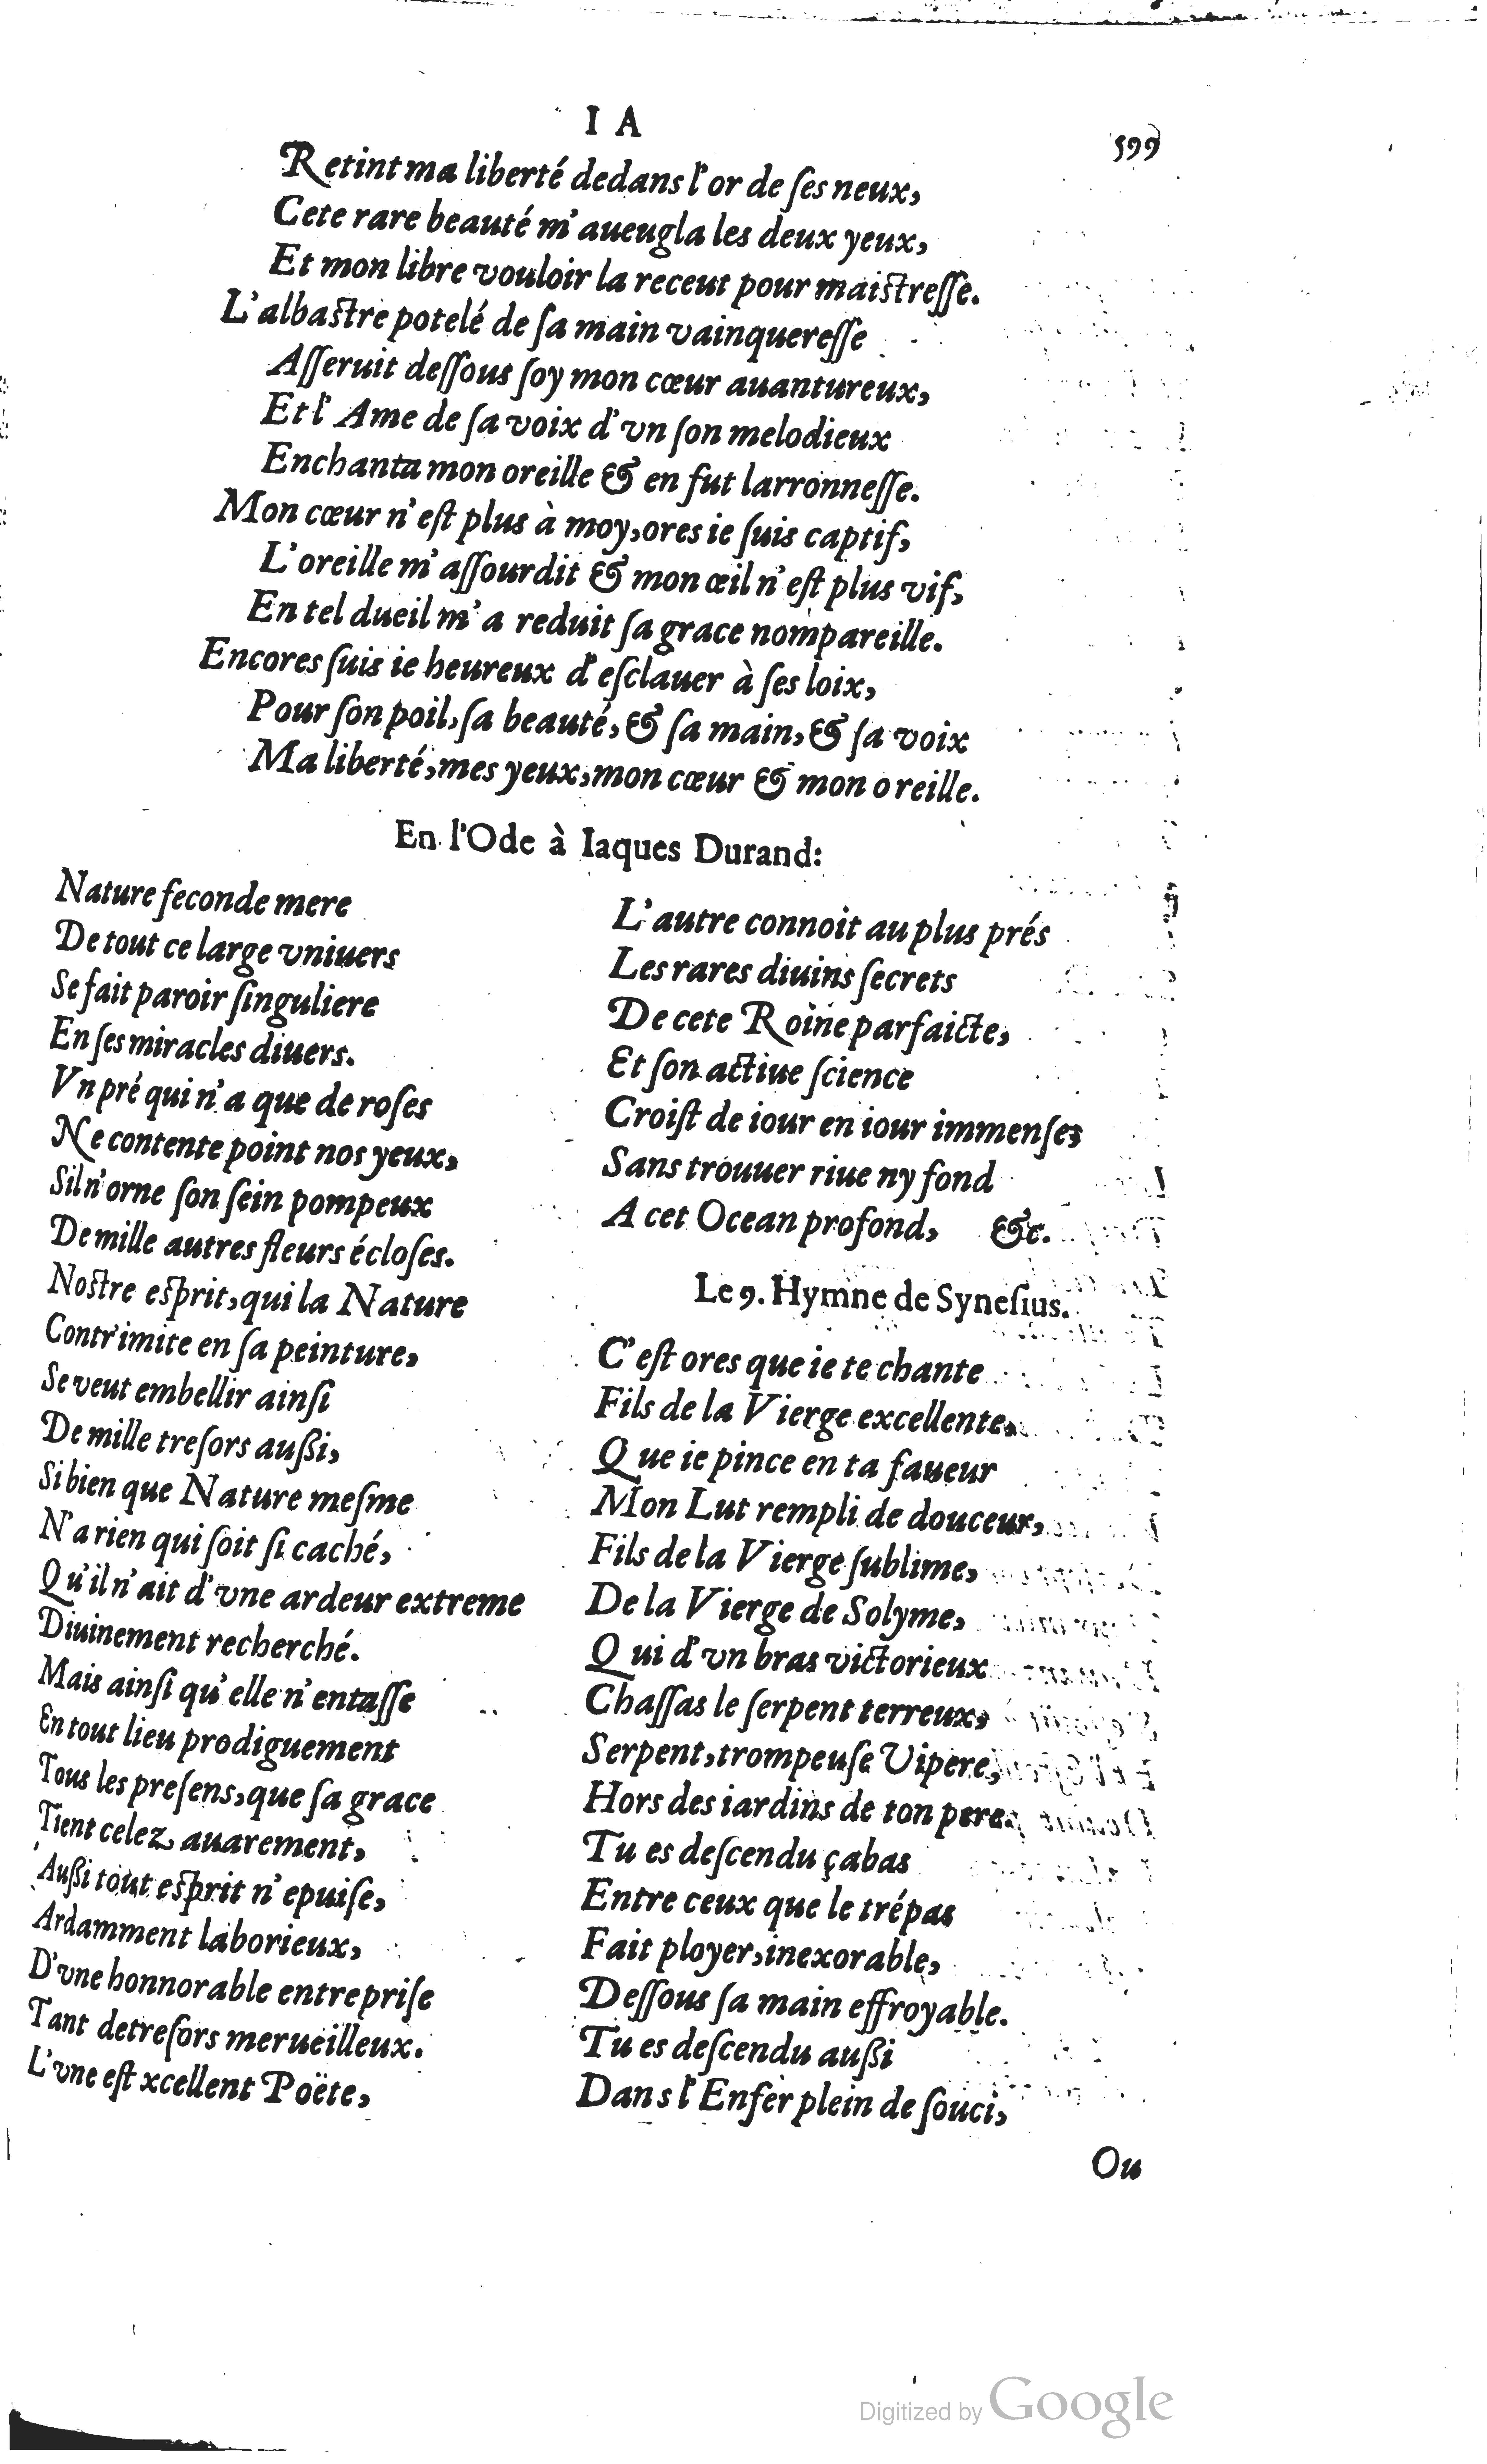 I A
599
Retint ma liberté dedans l'or de ſes neux,
Cete rare beauté m'aueugla les deux yeux,
Et mon libre vouloir la receut pour maiſtreſſe.
L'albaſtre potelé de ſa main vainquereſſe
Aſſeruit deſſous ſoy mon cœur auantureux,
Et l'Ame de ſa voix d'vn ſon melodieux
Enchanta mon oreille & en fut larronneſſe.
Mon cœur n'eſt plus à moy, ores ie ſuis captif,
L'oreille m'aſſourdit & mon œil n'eſt plus vif,
En tel dueil m'a reduit ſa grace nompareille.
Encores ſuis ie heureux d'eſclauer à ſes loix,
Pour ſon poil, ſa beauté, & ſa main, & ſa voix
Ma liberté, mes yeux, mon cœur & mon oreille.
En l'Ode à Iaques Durand:
Nature feconde mere
De tout ce large vniuers
Se fait paroir ſinguliere
En ſes miracles diuers.
Vn pré qui n'a que de roſes
Ne contente point nos yeux,
Sil n'orne ſon ſein pompeux
De mille autres fleurs écloſes.
Noſtre eſprit, qui la Nature
Contr'imite en ſa peinture,
Se veut embellir ainſi
De mille treſors außi,
Si bien que Nature meſme
N'a rien qui ſoit ſi caché,
Qu'il n'ait d'vne ardeur extreme
Diuinement recherché.
Mais ainſi qu'elle n'entaſſe
En tout lieu prodiguement
Tous les preſens, que ſa grace
Tient celez auarement,
Außi tout eſprit n'epuiſe,
Ardamment laborieux,
D'vne honnorable entrepriſe
Tant detreſors merueilleux.
L'vne eſt xcellent Poëte,
L'autre connoit au plus prés
Les rares diuins ſecrets
De cete Roine parfaicte,
Et ſon actiue ſcience
Croiſt de iour en iour immenſes
Sans trouuer riue ny fond
A cet Ocean profond, &c.
Le 9. Hymne de Syneſius.
C'eſt ores que ie te chante
Fils de la Vierge excellente,
Que ie pince en ta faueur
Mon Lut rempli de douceur,
Fils de la Vierge ſublime,
De la Vierge de Solyme,
Qui d'vn bras victorieux
Chaſſas le ſerpent terreux,
Serpent, trompeuſe Vipere,
Hors des iardins de ton pere.
Tu es deſcendu çabas
Entre ceux que le trépas
Fait ployer, inexorable,
Deſſous ſa main effroyable.
Tu es deſcendu außi
Dans l'Enfer plein de ſouci,
Ou
Digitized by Google